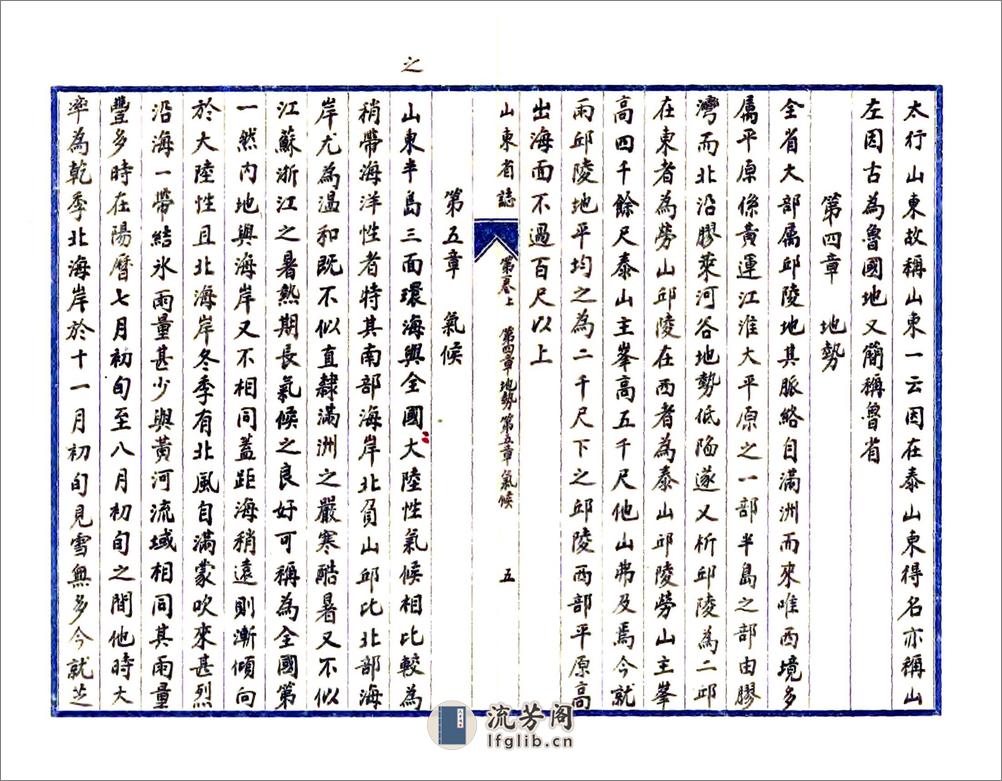 太行山東故稱山東一云因在泰山東得名亦稱山
左因古為魯國地又簡稱魯省
第四章 地勢
全省大部屬邱陵地其脈絡自滿洲而來唯西境多
屬平原係黃運江淮大平原之一部半島之部由膠
灣而北沿膠萊河谷地勢低陷遂又析邱陵為二邱
在東者為勞山邱陵在西者為泰山邱陵勞山主峯
高四千餘尺泰山主峯高五千尺他山弗及焉今就
兩邱陵地平均之為二千尺下之邱陵西部平原高
出海面不過百尺以上
山東省誌 第一卷上 第四章地勢 第五章氣候 五
第五章 氣候
之
山東半島三面環海與全國大陸性氣候相比較為
稍帶海洋性者特其南部海岸北負山邱比北部海
岸尤為溫和既不似直隸滿洲之嚴寒酷暑又不似
江蘇浙江之暑熱期長氣候之良好可稱為全國第
一然內地與海岸又不相同蓋距海稍遠則漸傾向
於大陸性且北海岸冬季有北風自滿蒙吹來甚烈
沿海一帶結氷雨量甚少與黃河流域相同其雨量
豐多時在陽曆七月初旬至八月初旬之間他時大
率為乾季北海岸於十一月初旬見雪無多今就芝
流芳阁
lfglib.cn